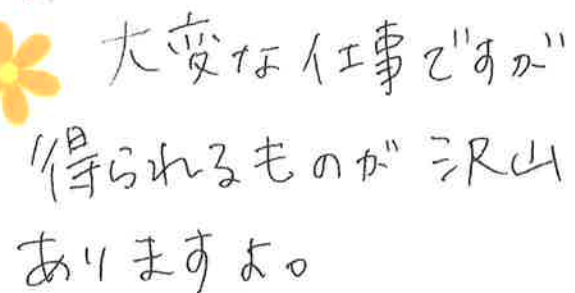 大変な仕事ですが
得られるものが沢山
ありますよ。